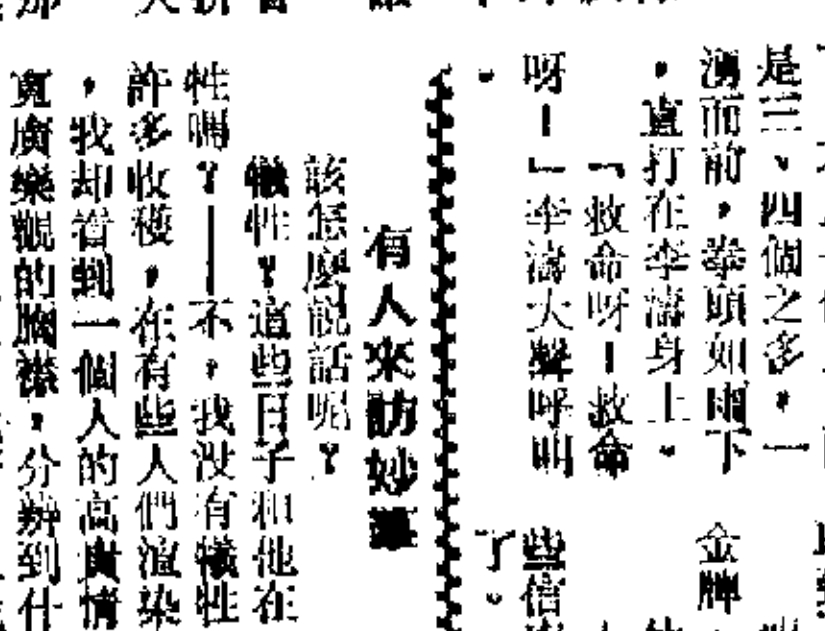 是三、四個之多，一
湧而前，拳頭如雨下
，直打在李濤身上。
「救命呀！救命
呀！」李濤大聲呼叫
。
金牌
些信
了。
有人來訪妙
該怎麼說話呢？
犧牲？這些日子和他在
牲嗎？——不，我沒有犧牲
許多收穫，在有些人們渲染
，我却看到一個人的高貴情
寬廣樂觀的胸襟，分辨到什